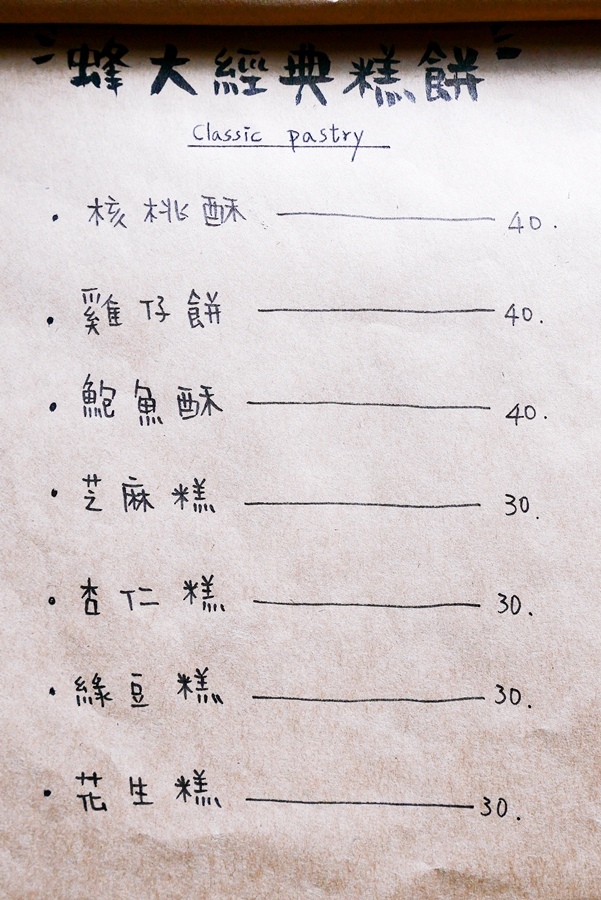 蜂大經典糕餅
Classic pastry
· 核桃酥 —— 40.
· 雞仔餅 —— 40.
· 鮑魚酥 —— 40.
· 芝麻糕 —— 30.
· 杏仁糕 —— 30.
· 綠豆糕 —— 30.
· 花生糕 —— 30.